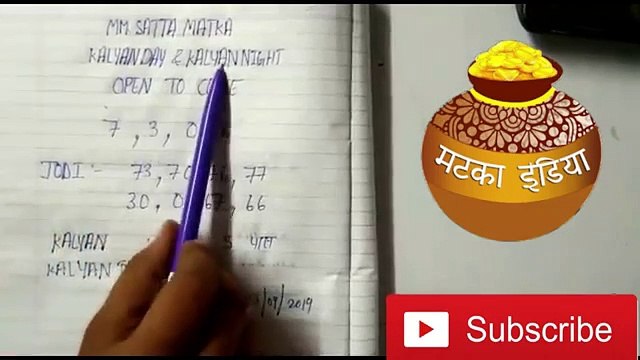 MM. SATTA MATKA
KALYAN DAY & KALYAN NIGHT
OPEN TO
7, 3, 0
JODI :- 73, 70, 77
30, 66
KALYAN
KALYAN
/09/2019
मटका इंडिया
Subscribe